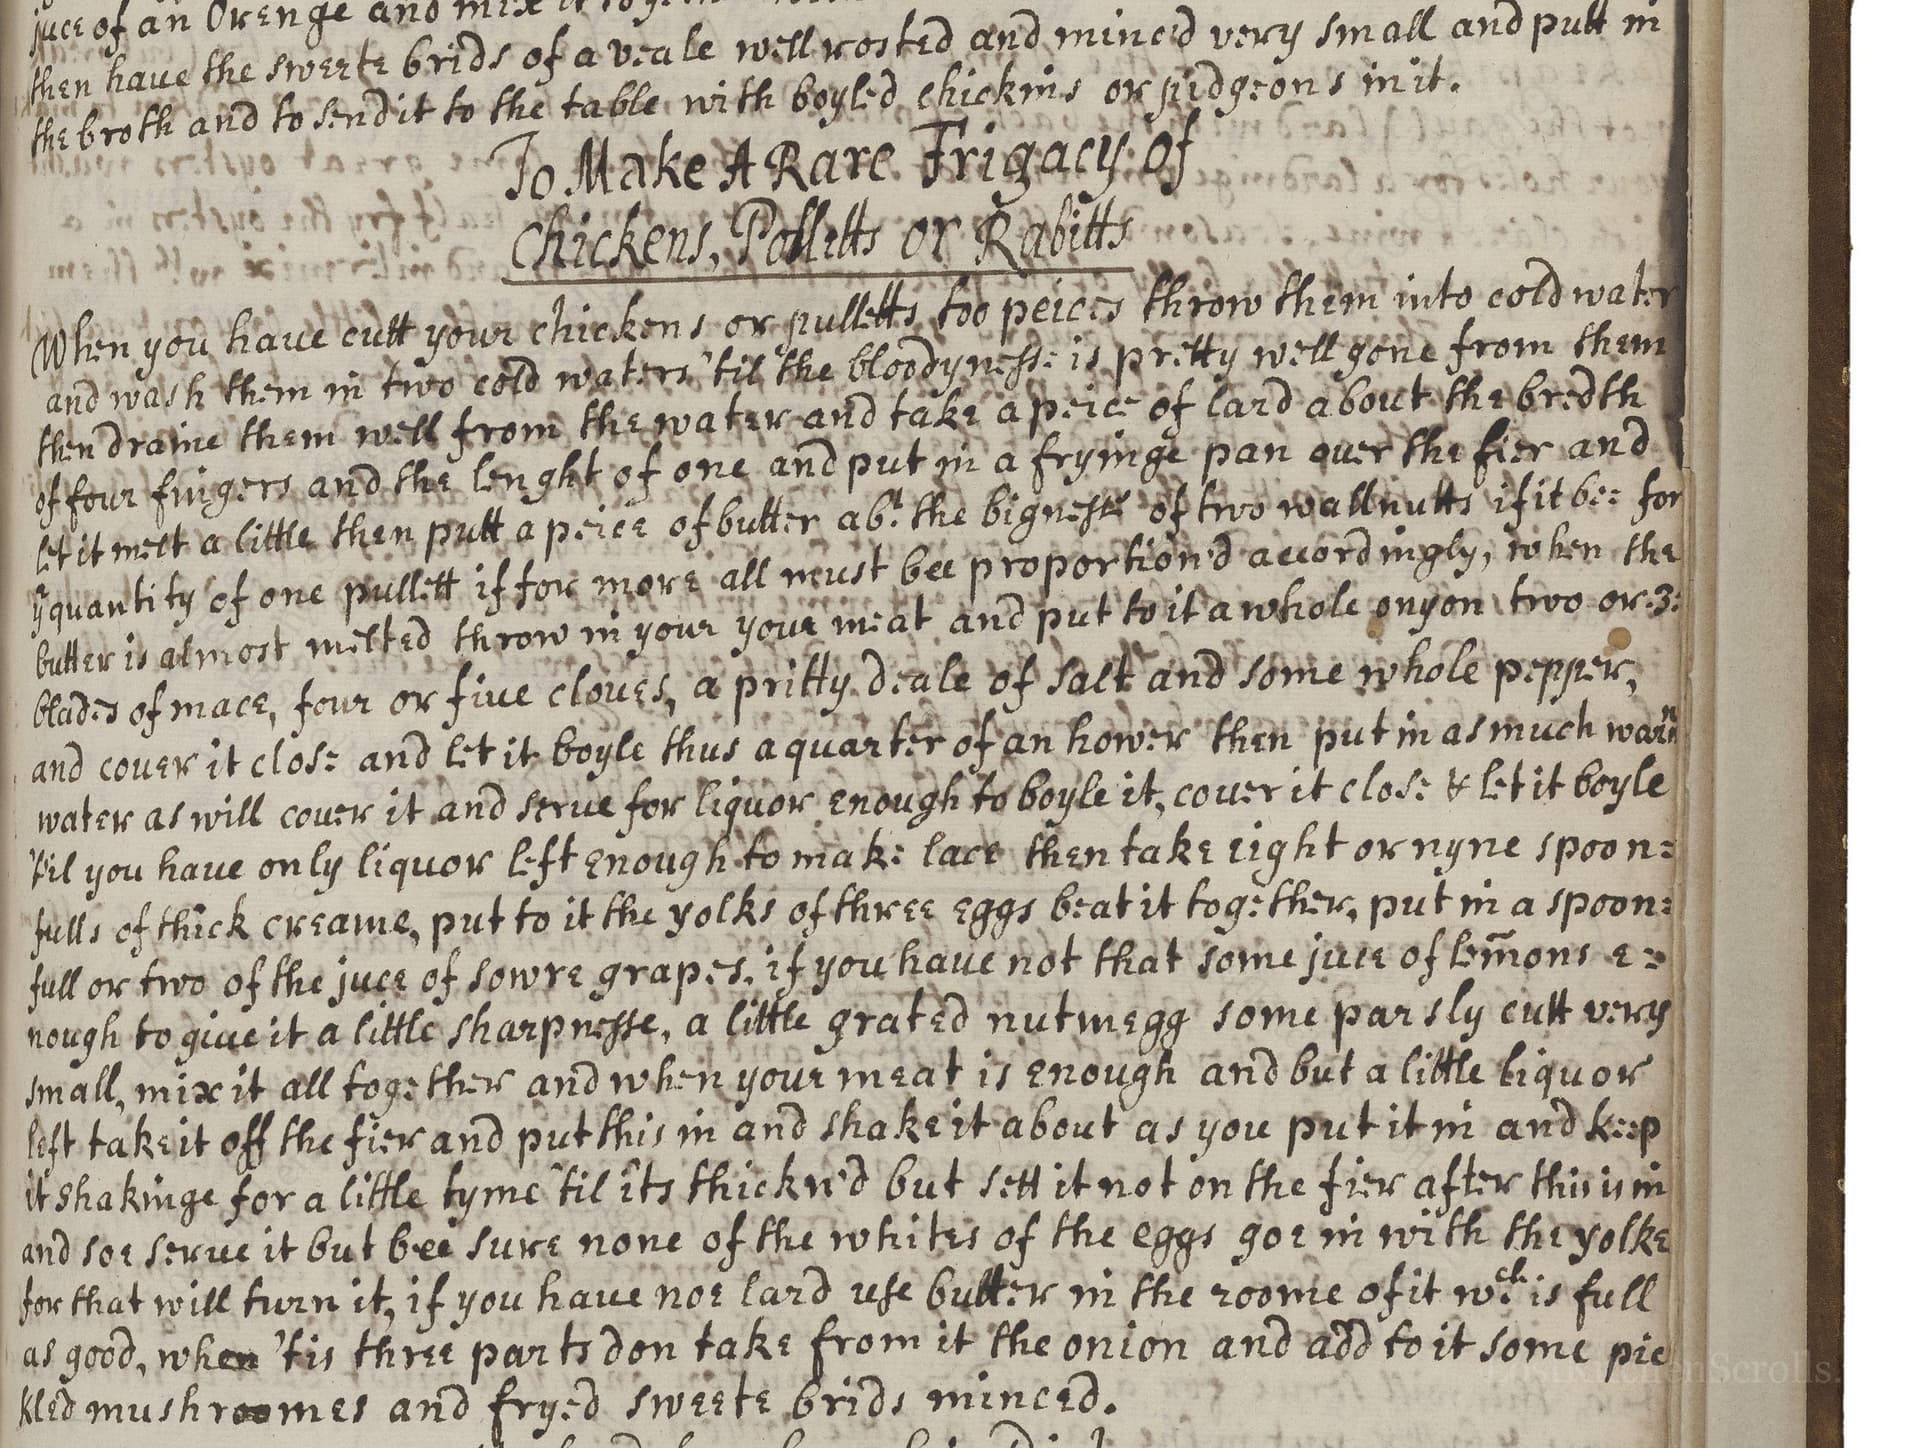 juce of an Orenge and mix it
then have the sweete brids of a veale well rosted and minc'd very small and putt in
the broth and to send it to the table with boyled chickins or pidgeons in it.
To Make A Rare Frigacy of
Chickens, Polletts or Rabitts
When you have cutt your chickens or pulletts too peices throw them into cold water
and wash them in two cold waters 'til the bloodynesse is pretty well gone from them
then draine them well from the water and take a peice of lard about the bredth
of four fingers and the lenght of one and put in a fryinge pan over the fier and
let it melt a little then putt a peice of butter abt. the bignesse of two wallnutts if it bee for
ye quantity of one pullett if for more all must bee proportion'd accordingly, when the
butter is almost melted throw in your your meat and put to it a whole onyon two or 3:
blades of mace, four or five cloves, a pritty deale of salt and some whole pepper,
and cover it close and let it boyle thus a quarter of an hower then put in as much warm
water as will cover it and serve for liquor enough to boyle it, cover it close & let it boyle
'til you have only liquor left enough to make lare then take eight or nyne spoon:
fulls of thick creame, put to it the yolks of three eggs beat it together, put in a spoon:
full or two of the juce of sowre grapes, if you have not that some juce of lem̄ons e:
nough to give it a little sharpnesse, a little grated nutmegg some parsly cutt very
small, mix it all together and when your meat is enough and but a little liquor
left take it off the fier and put this in and shake it about as you put it in and keep
it shakinge for a little tyme 'til its thickn'd but sett it not on the fier after this is in
and soe serve it but bee sure none of the whites of the eggs goe in with the yolke
for that will turn it, if you have noe lard use butter in the roome of it wch. is full
as good, when 'tis three parts don take from it the onion and add to it some pic
kled mushroomes and fryed sweete brids minced.